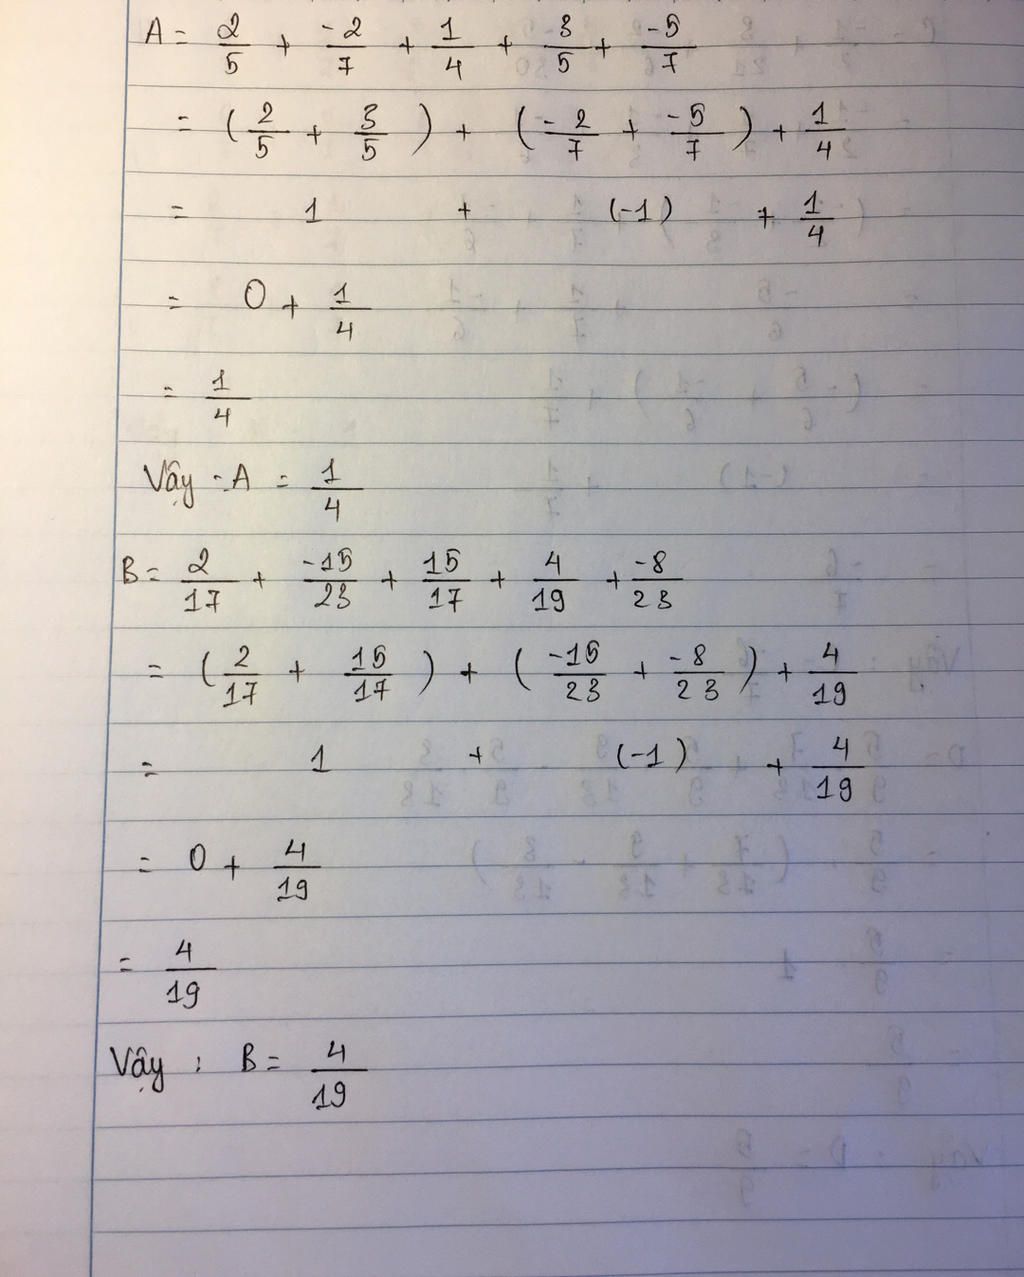 A = 2/5 + -2/7 + 1/4 + 3/5 + -5/7
= (2/5 + 3/5) + (-2/7 + -5/7) + 1/4
= 1 + (-1) + 1/4
= 0 + 1/4
= 1/4
Vậy : A = 1/4
B = 2/17 + -15/23 + 15/17 + 4/19 + -8/23
= (2/17 + 15/17) + (-15/23 + -8/23) + 4/19
= 1 + (-1) + 4/19
= 0 + 4/19
= 4/19
Vậy : B = 4/19